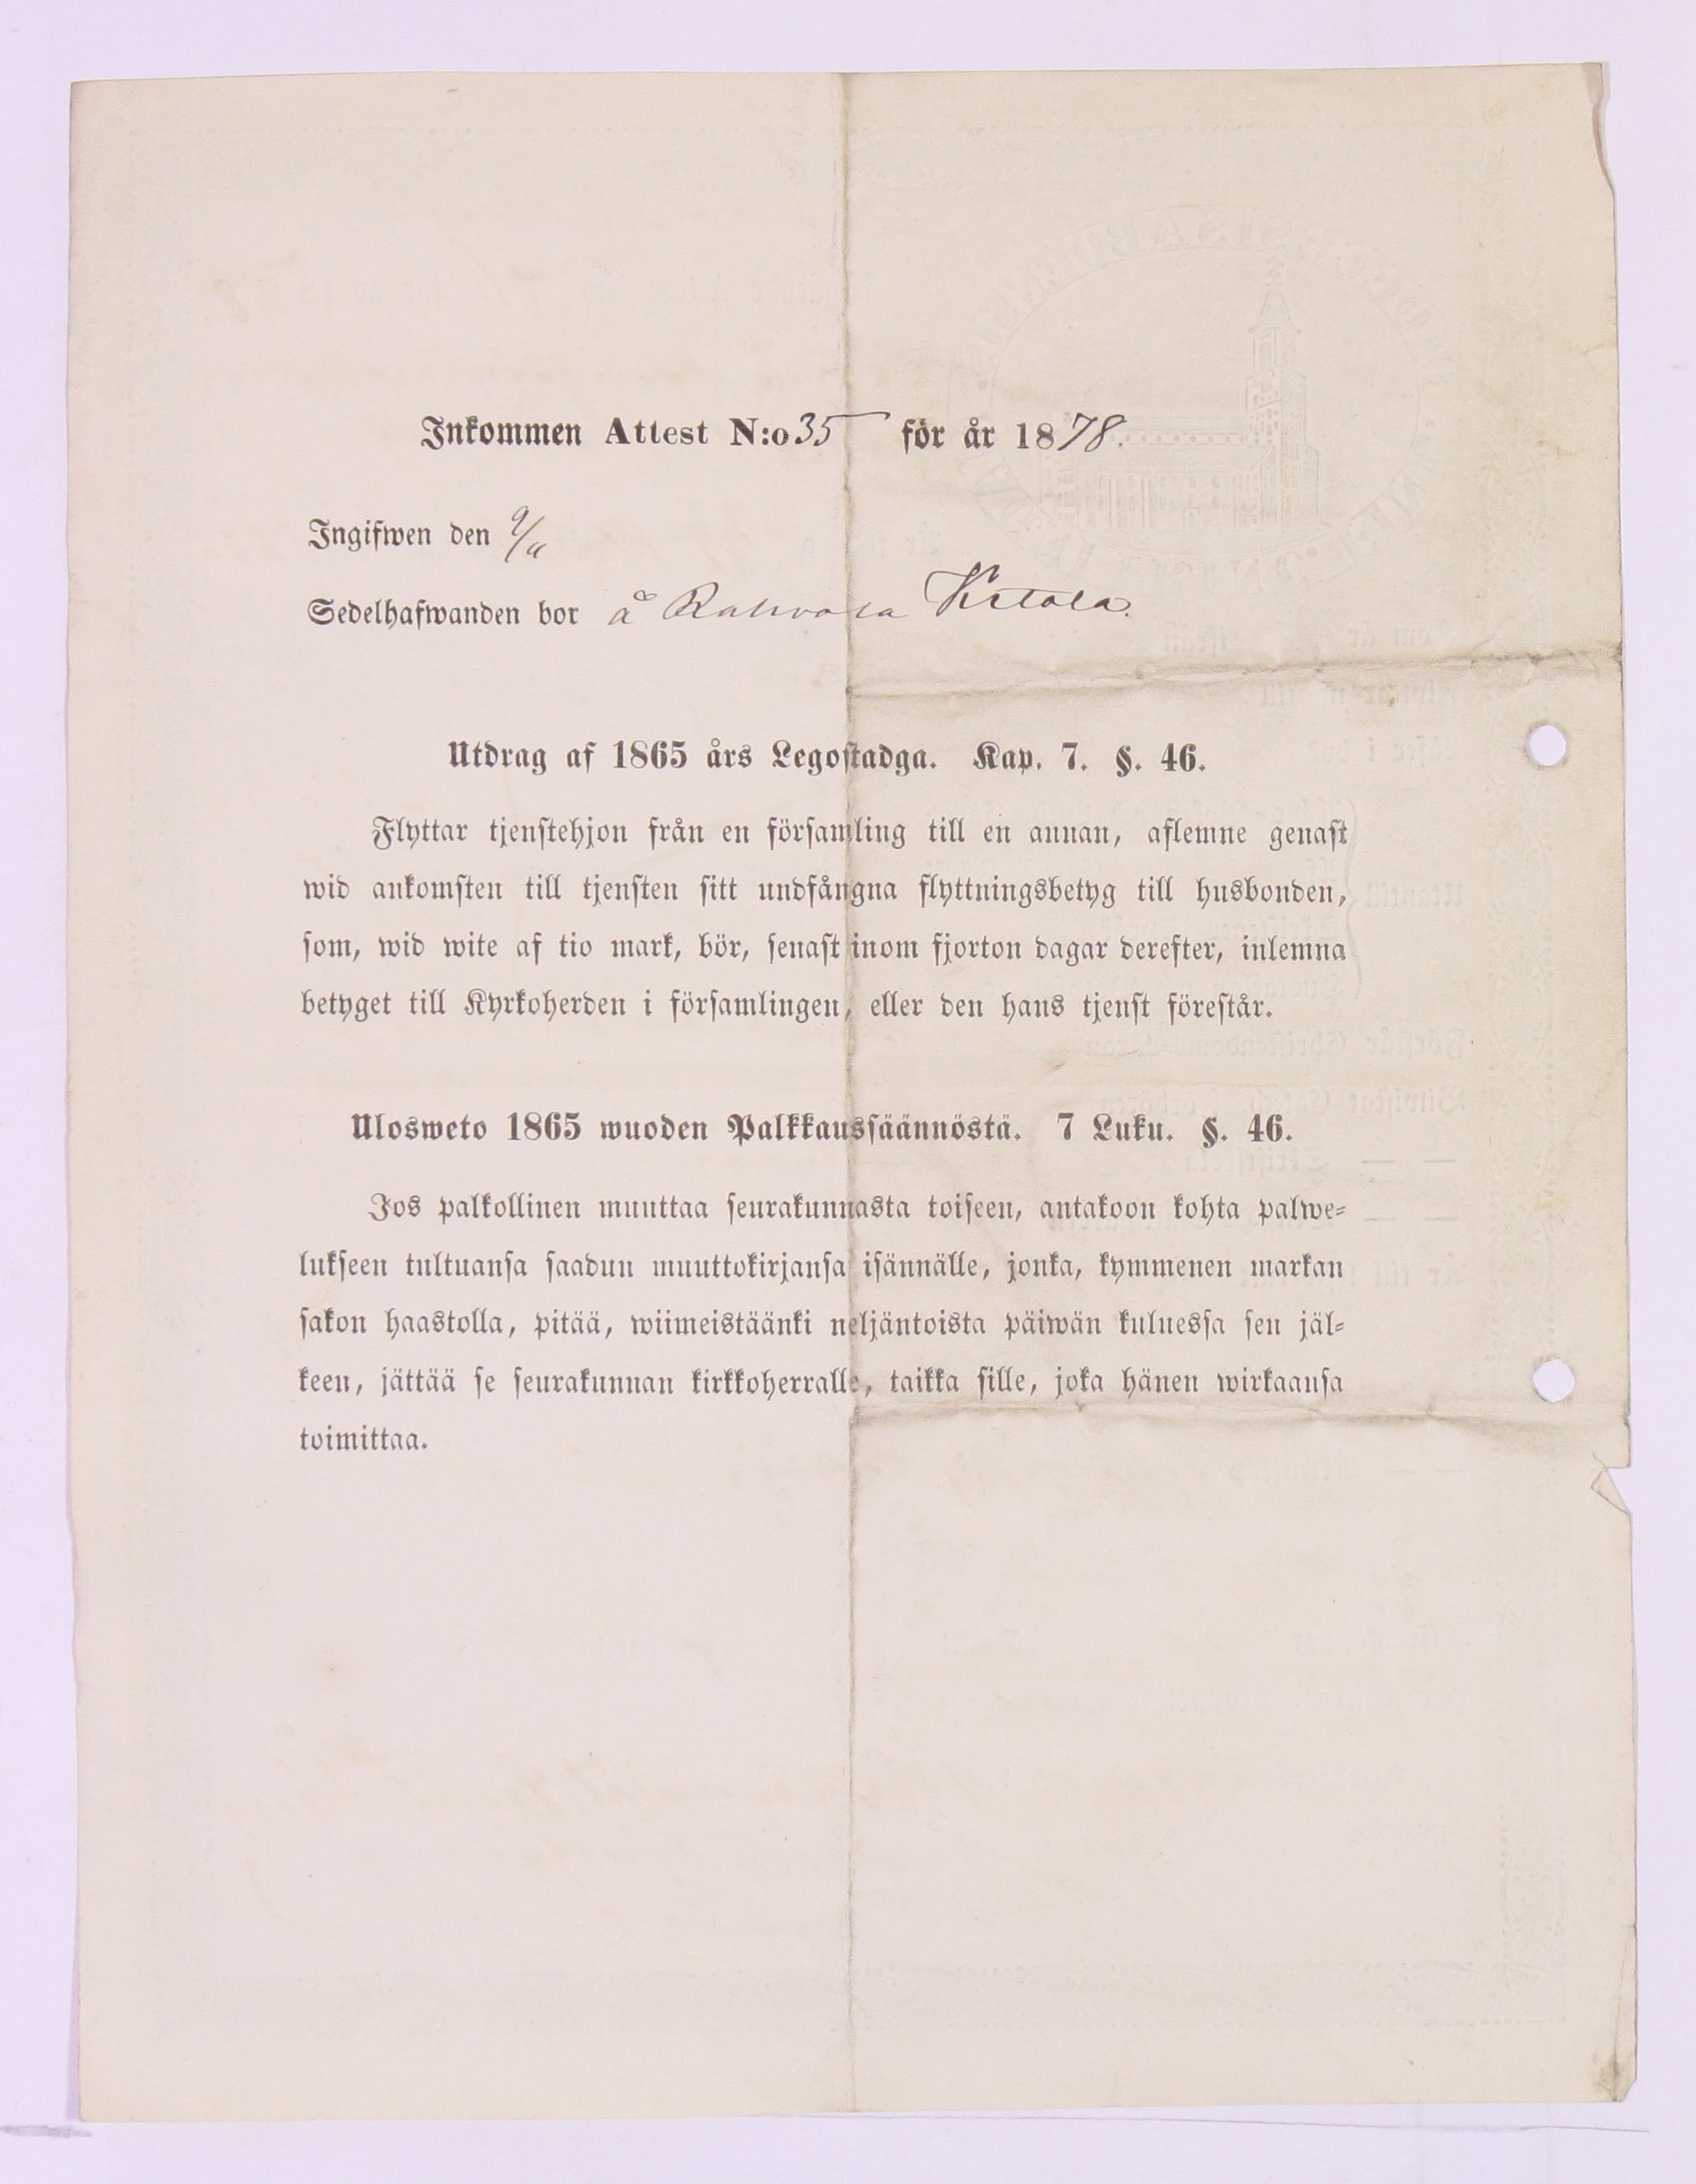 Inkommen Attest N:o 35 för år 1878.
Ingifwen den 9/11
Sedelhafwanden bor å
Utdrag af 1865 års Legostadga. Kap. 7. §. 46.
Flyttar tjenstehjon från en församling till en annan, aflemne genast
wid ankomsten till tjensten sitt undfångna flyttningsbetyg till husbonden,
som, wid wite af tio mark, bör, senast inom fjorton dagar derefter, inlemna
betyget till Kyrkoherden i församlingen, eller den hans tjenst förestår.
Ulosweto 1865 wuoden Palkkaussäännöstä. 7 Luku. §. 46.
Jos palkollinen muuttaa seurakunnasta toiseen, antakoon kohta palwe-
lukseen tultuansa saadun muuttokirjansa isännälle, jonka, kymmenen markan
sakon haastolla, pitää, wiimeistäänki neljäntoista päiwän kuluessa sen jäl-
keen, jättää se seurakunnan kirkkoherralle, taikka sille, joka hänen wirkaansa
toimittaa.